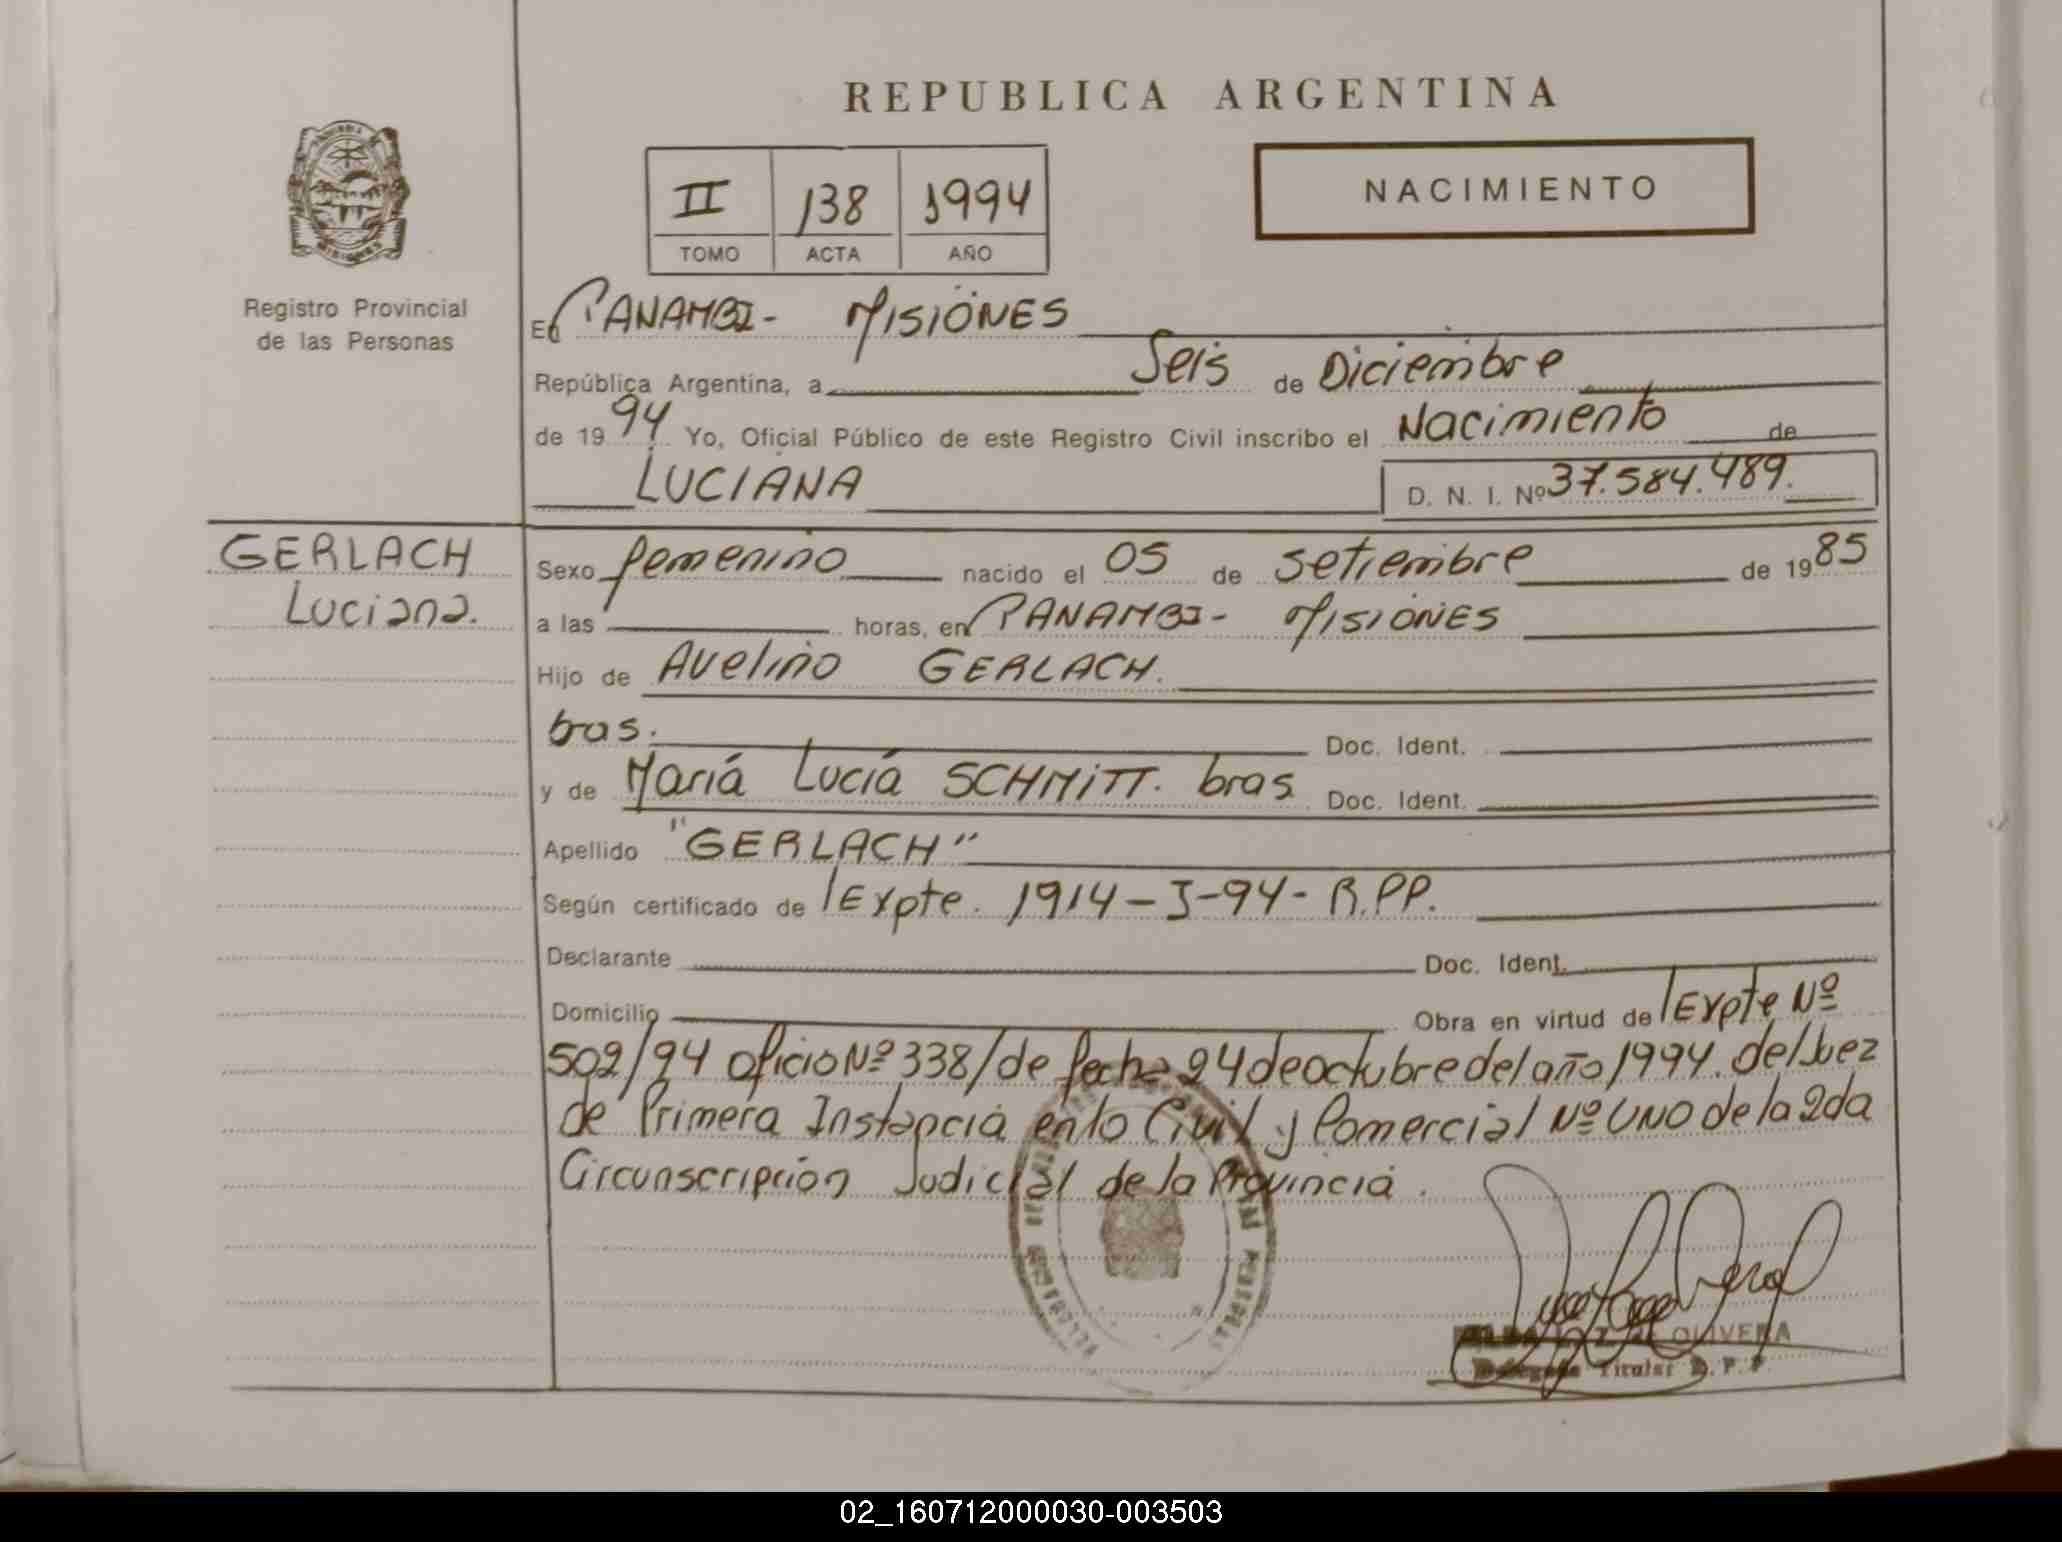 REPUBLICA ARGENTINA
NACIMIENTO
II 138 1994
TOMO ACTA AÑO
Registro Provincial
de las Personas
En PANAMBI- MISIONES
República Argentina, a Seis de Diciembre
de 1994 Yo, Oficial Público de este Registro Civil inscribo el Nacimiento de
LUCIANA D. N. I. Nº 37.584.489.
GERLACH
Luciana.
Sexo femenino nacido el 05 de setiembre de 1985
a las horas, en PANAMBI- MISIONES
Hijo de Avelino GERLACH.
bras. Doc. Ident.
y de María Lucía SCHMITT. bras Doc. Ident.
Apellido "GERLACH"
Según certificado de Expte. 1914-J-94- R.P.P.
Declarante Doc. Ident.
Domicilio Obra en virtud de Expte Nº
502/94 oficio Nº 338/de fecha 24 de octubre del año 1994. del Juez
de Primera Instancia en lo Civil y Comercial Nº UNO de la 2da
Circunscripción Judicial de la Provincia.
OLIVERA
Titular R. P. P.
02_160712000030-003503